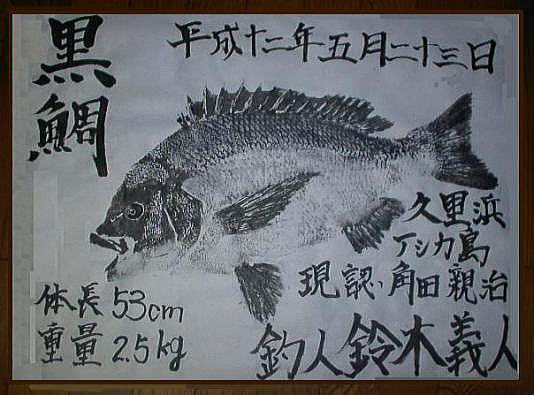 黒鯛
平成十二年五月二十三日
久里浜
アシカ島
現認、角田親治
体長53cm
重量2.5kg
釣人鈴木義人